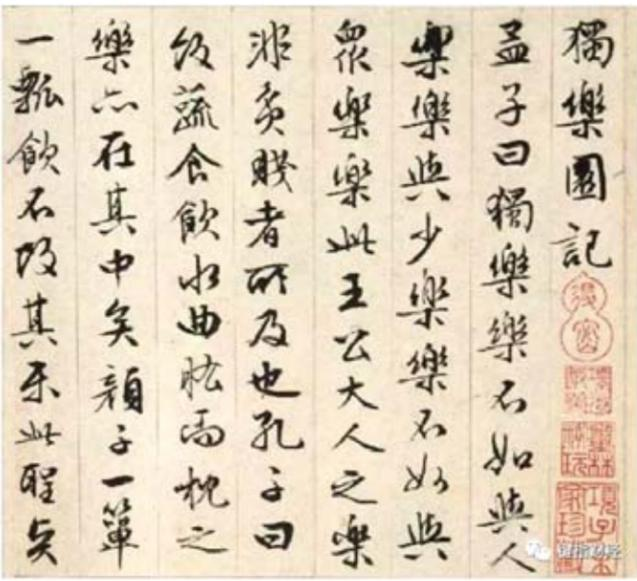 獨樂園記
孟子曰獨樂樂不如與人
樂樂與少樂樂不如與
衆樂樂此王公大人之樂
非貧賤者所及也孔子曰
飯蔬食飲水曲肱而枕之
樂亦在其中矣顏子一簞
一瓢飲不改其樂此聖矣
墨林
項子京
家珍藏